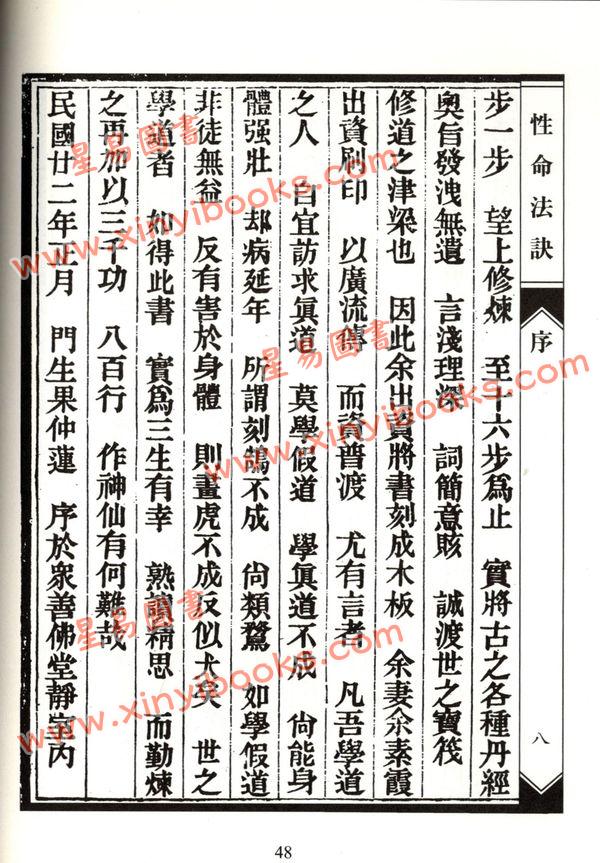 性命法訣
序
八
步一步　望上修煉　至十六步為止　實將古之各種丹經
奧旨發洩無遺　言淺理深　詞簡意賅　誠渡世之寶筏
修道之津梁也　因此余出資將書刻成木板　余妻余素霞
出資刷印　以廣流傳　而資普渡　尤有言者　凡吾學道
之人　自宜訪求眞道　莫學假道　學眞道不成　尙能身
體强壯　却病延年　所謂刻鵠不成　尙類鶩　如學假道
非徒無益　反有害於身體　則畫虎不成反似犬矣　世之
學道者　如得此書　實爲三生有幸　熟讀精思　而勤煉
之再加以三千功　八百行　作神仙有何難哉
民國廿二年正月　門生果仲蓮　序於衆善佛堂靜室內
48
星易圖書
www.xinyibooks.com
星易圖書
www.xinyibooks.com
星易圖書
www.xinyibooks.com